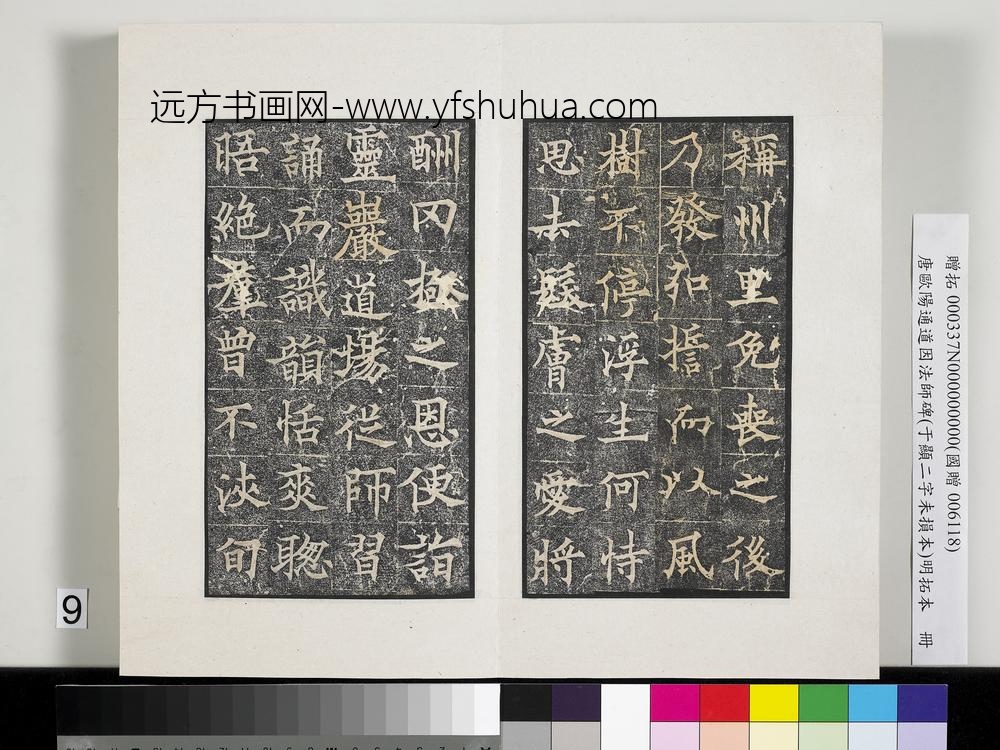 远方书画网-www.yfshuhua.com
稱州里免喪之後
乃發弘擔而以風
樹不停浮生何恃
思去髮膚之愛將
酬罔極之恩便詣
靈巖道場從師習
誦而識韻恬爽聦
晤絶羣曾不浹旬
贈拓 000337N000000000(國贈 006118)
唐歐陽通道因法師碑(于顯二字未損本)明拓本 冊
9